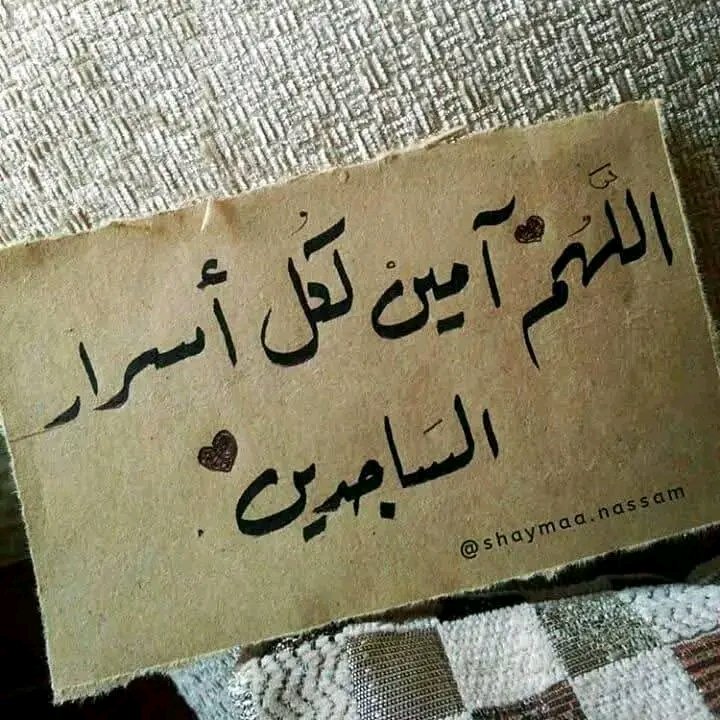 اللَّهُمْ آمينْ لكُل أسرار
الساجدين.
@shaymaa.nassam